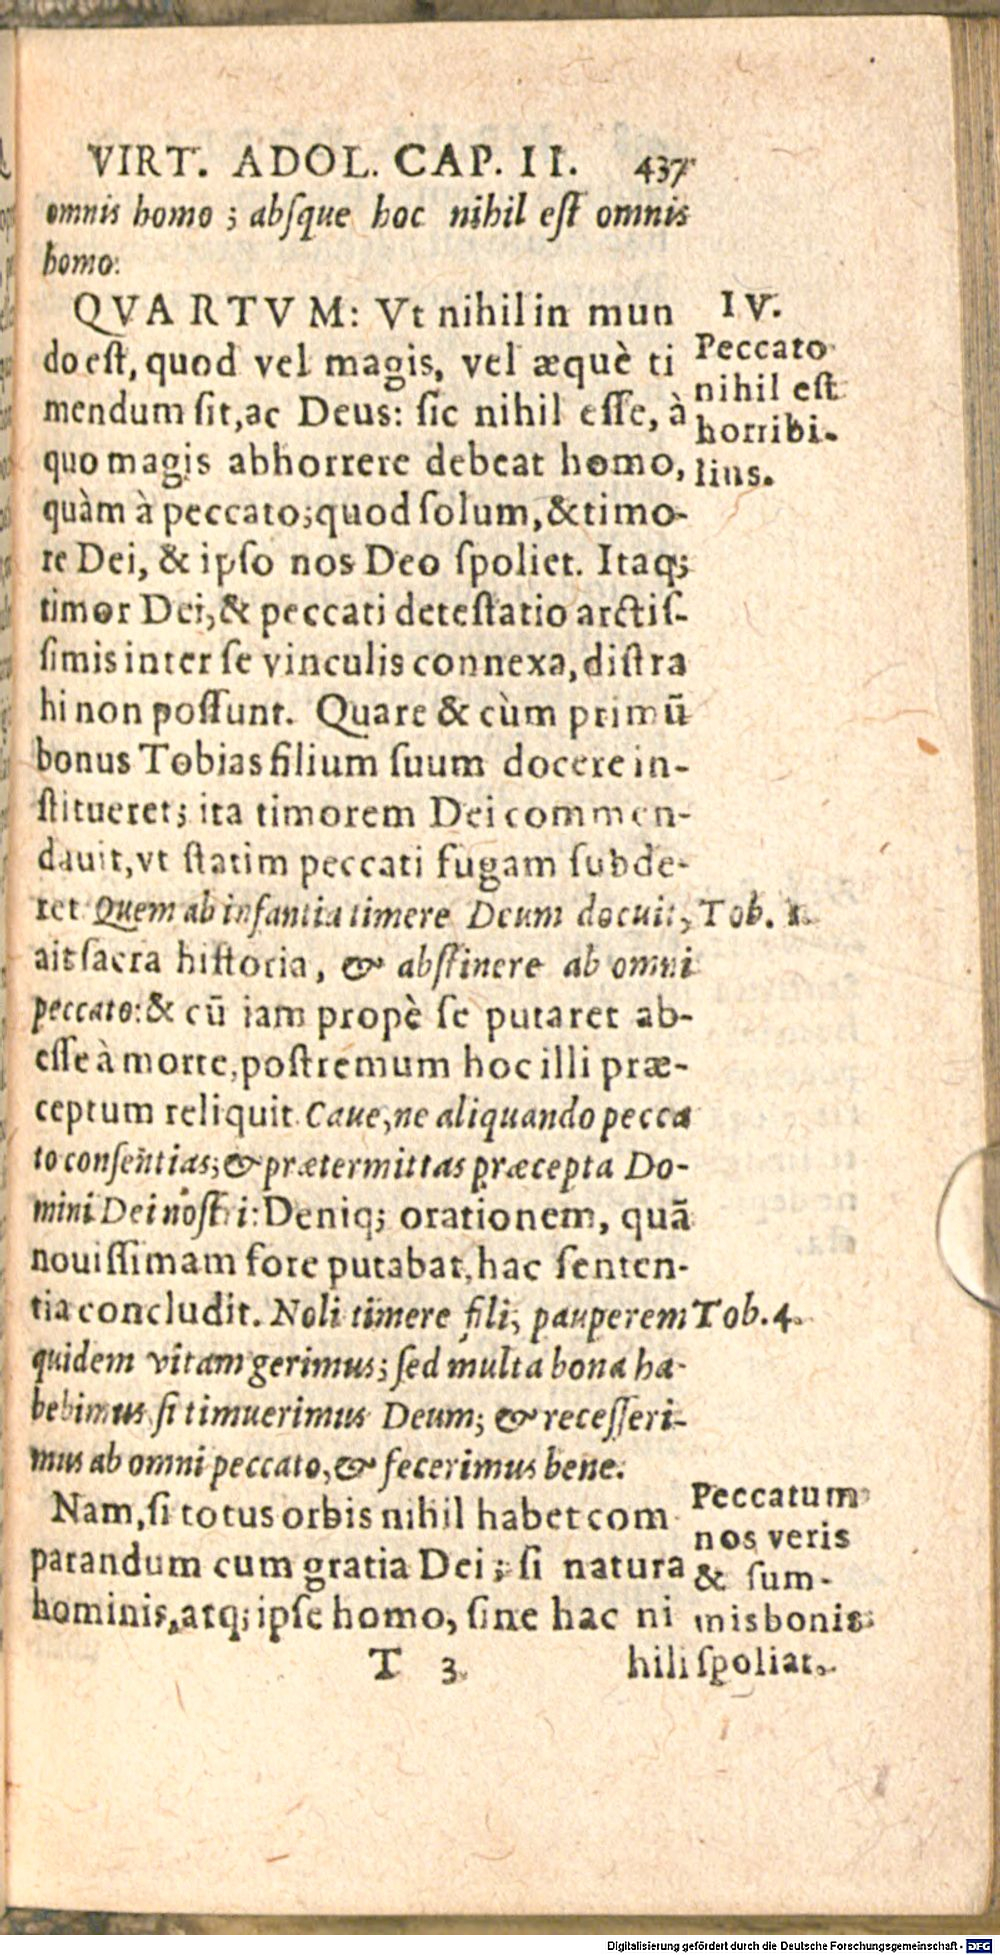 VIRT. ADOL. CAP. II. 437
omnis homo ; abſque hoc nihil eſt omnis
homo.
QVARTVM: Vt nihil in mun
do eſt, quod vel magis, vel æquè ti
mendum ſit, ac Deus: ſic nihil eſſe, à
quo magis abhorrere debeat homo,
quàm à peccato; quod ſolum, & timo-
re Dei, & ipſo nos Deo ſpoliet. Itaq;
timor Dei, & peccati deteſtatio arctiſ-
ſimis inter ſe vinculis connexa, diſtra
hi non poſſunt. Quare & cùm primũ
bonus Tobias filium ſuum docere in-
ſtitueret; ita timorem Dei commen-
dauit, vt ſtatim peccati fugam ſubde-
ret. Quem ab infantia timere Deum docuit,
ait ſacra hiſtoria, & abſtinere ab omni
peccato: & cũ iam propè ſe putaret ab-
eſſe à morte, poſtremum hoc illi præ-
ceptum reliquit. Caue, ne aliquando pecca
to conſentias; & prætermittas præcepta Do-
mini Dei noſtri: Deniq; orationem, quã
nouiſſimam fore putabat, hac ſenten-
tia concludit. Noli timere fili, pauperem
quidem vitam gerimus; ſed multa bona ha-
bebimus ſi timuerimus Deum; & receſſeri-
mus ab omni peccato, & fecerimus bene.
Nam, ſi totus orbis nihil habet com
parandum cum gratia Dei; ſi natura
hominis, atq; ipſe homo, ſine hac ni
T 3 hil
IV.
Peccato
nihil eſt
horribi-
lius.
Tob. 1.
Tob. 4.
Peccatum
nos veris
& ſum-
mis bonis
ſpoliat.
Digitalisierung gefördert durch die Deutsche Forschungsgemeinschaft - DFG